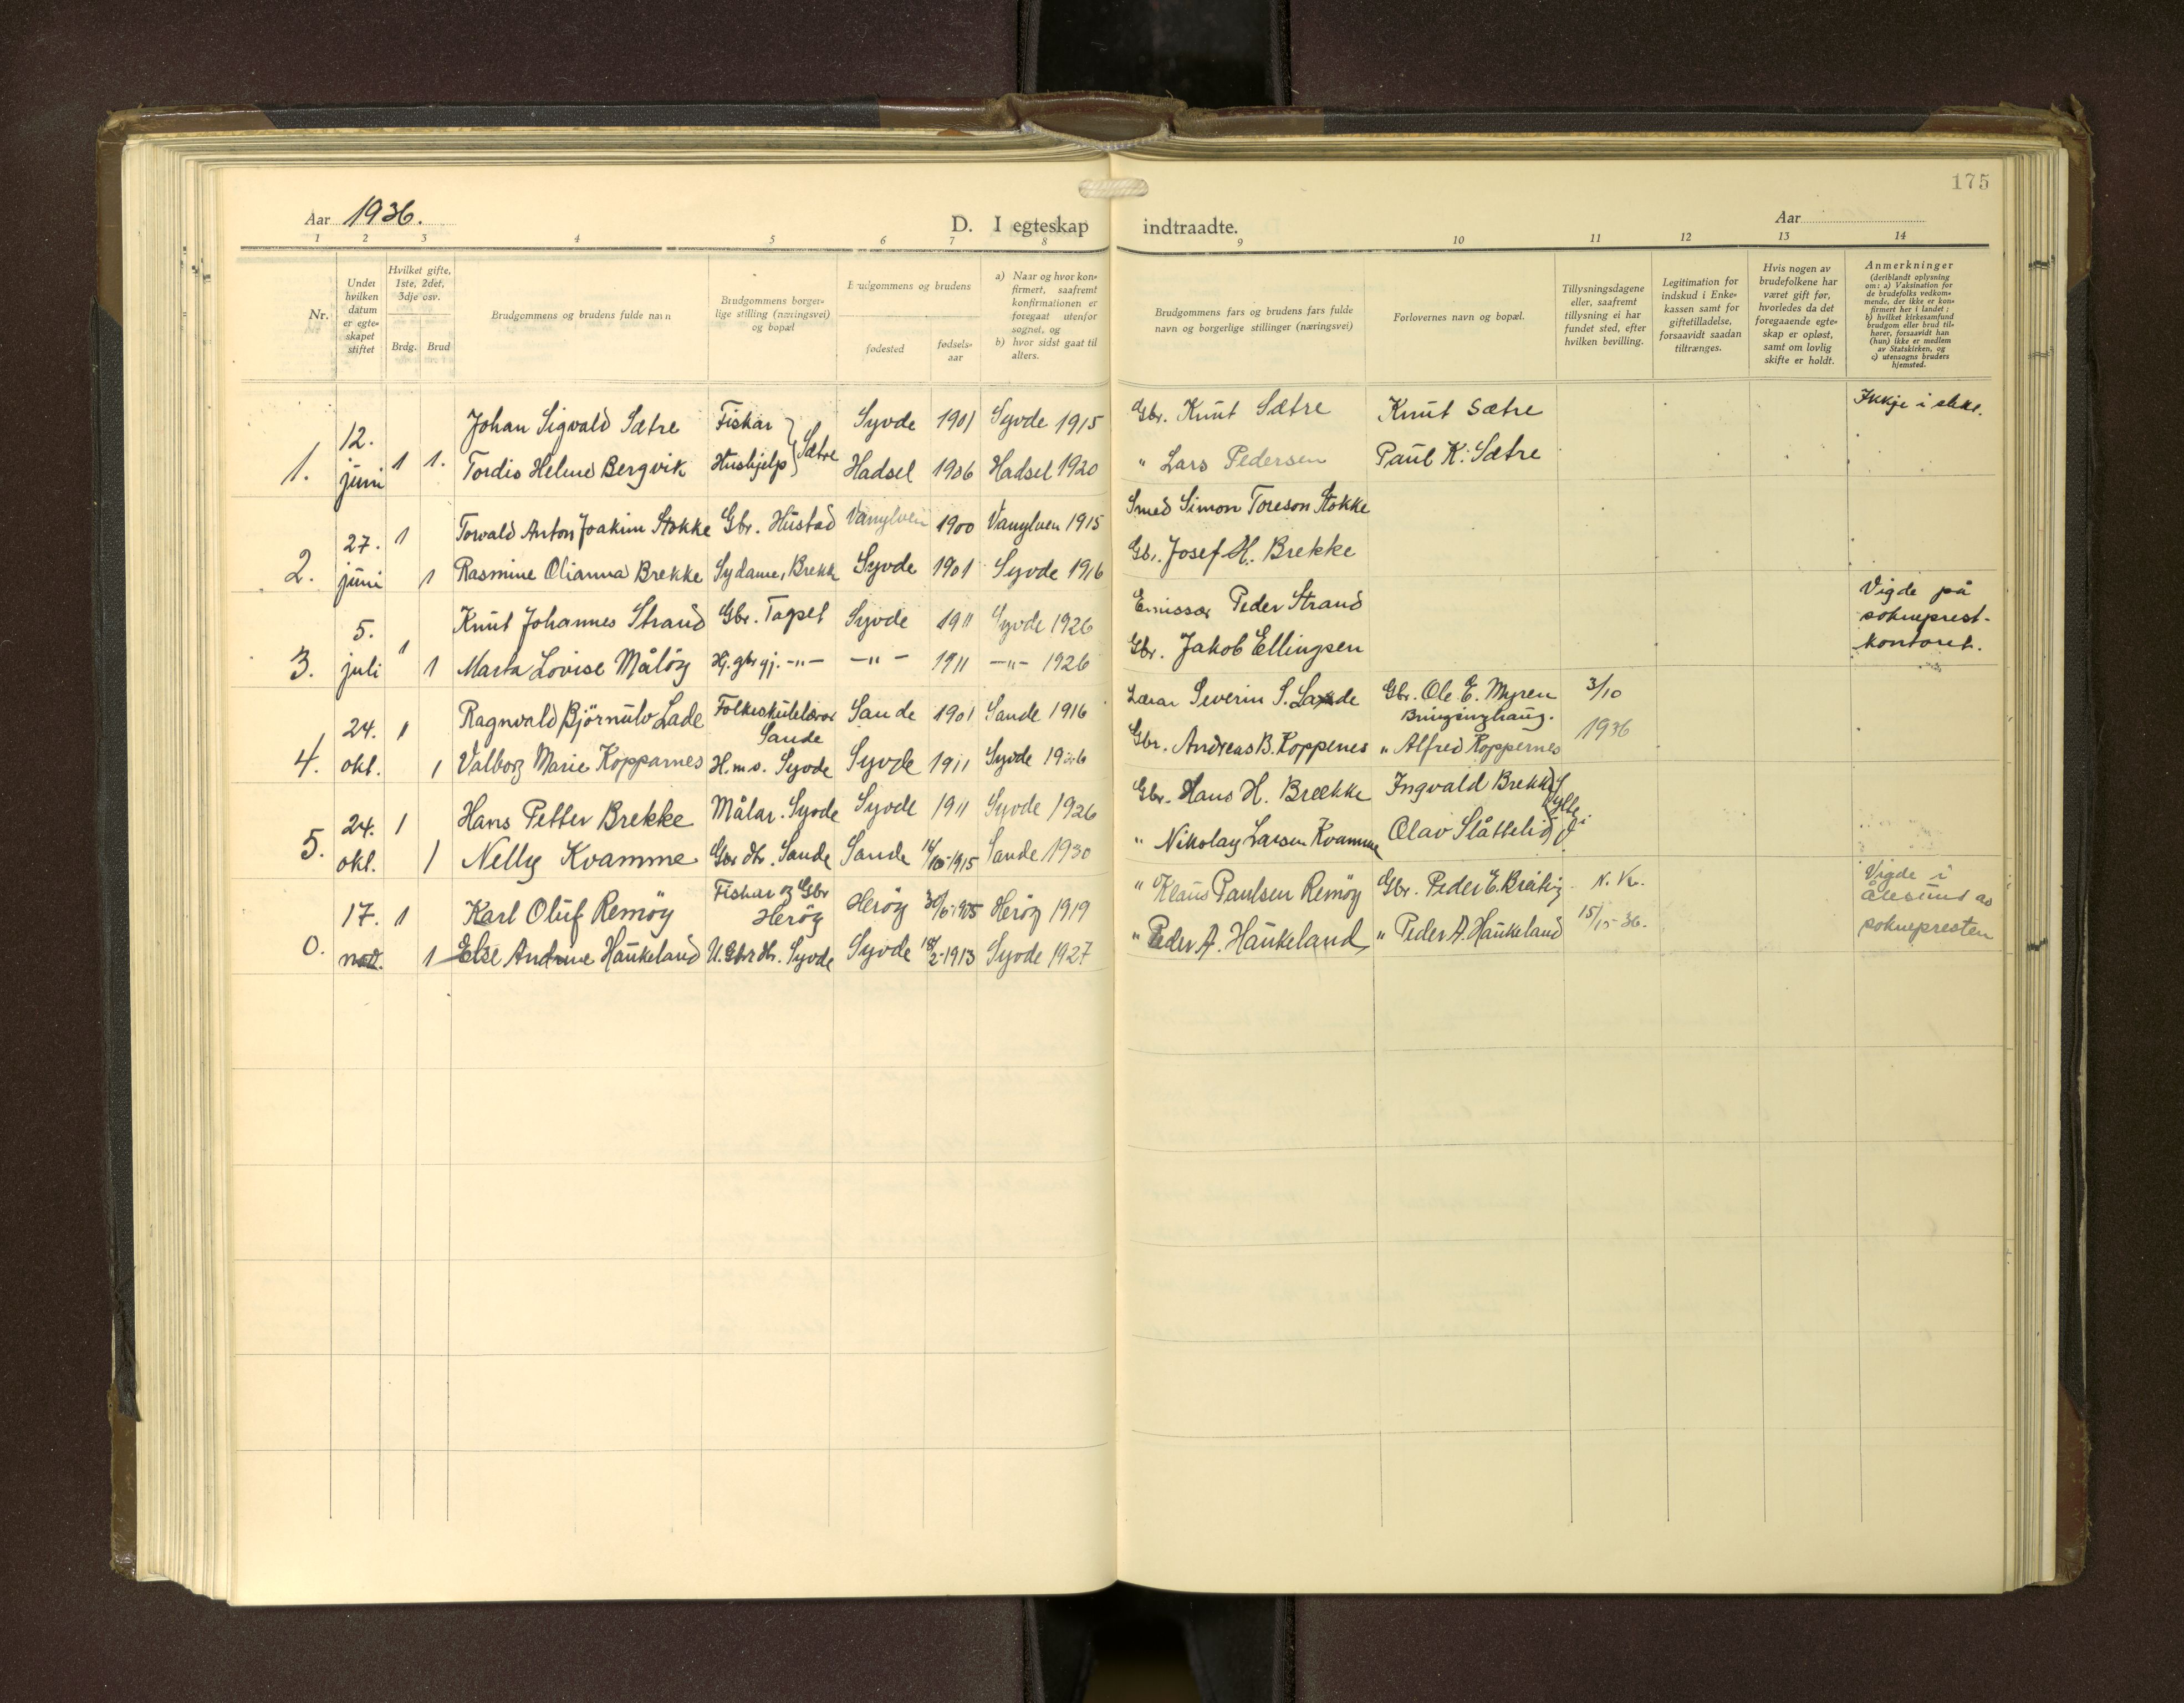 175
Aar 1936.
D. I egteskap indtraadte.
Aar
1 2 3 4 5 6 7 8 9 10 11 12 13 14
Nr.
Under hvilken datum er egteskapet stiftet
Hvilket gifte, 1ste, 2det, 3dje osv.
Brdg. Brud
Brudgommens og brudens fulde navn
Brudgommens borgerlige stilling (næringsvei) og bopæl
Brudgommens og brudens
fødested
fødselsaar
a) Naar og hvor konfirmert, saafremt konfirmationen er foregaat utenfor sognet, og
b) hvor sidst gaat til alters.
Brudgommens fars og brudens fars fulde navn og borgerlige stillinger (næringsvei)
Forlovernes navn og bopæl.
Tillysningsdagene eller, saafremt tillysning ei har fundet sted, efter hvilken bevilling.
Legitimation for indskud i Enkekassen samt for giftetilladelse, forsaavidt saadan tiltrænges.
Hvis nogen av brudefolkene har været gift før, hvorledes da det foregaaende egteskap er opløst, samt om lovlig skifte er holdt.
Anmerkninger
(deriblandt oplysning om: a) Vaksination for de brudefolks vedkommende, der ikke er konfirmert her i landet; b) hvilket kirkesamfund brudgom eller brud tilhører, forsaavidt han (hun) ikke er medlem av Statskirken, og c) utensogns bruders hjemsted.
12. Johan Sigvald Sætre Fiskar Syvde 1901 Syvde 1915 Gbr. Knut Sætre Knut Sætre Ikkje i slekt.
1. juni 1 1. Tordis Helene Bergvik Hushjelp } Sætre Hadsel 1906 Hadsel 1920 " Lars Pedersen Paul K. Sætre
27. 1 Torvald Anton Joakim Stokke Gbr. Hustad Vanylven 1900 Vanylven 1915 Smed Simon Toreson Stokke
2. juni 1 Rasmine Olianna Brekke Sydame, Brekk Syvde 1901 Syvde 1916 Gbr. Josef H. Brekke
5. 1 Knut Johannes Strand Gbr. Tapset Syvde 1911 Syvde 1926 Emissær Peder Strand Vigde på sokneprest-
3. juli 1 Marta Lovise Måløy Hj. gbrgj. -"- -"- 1911 -"- 1926 Gbr. Jakob Ellingsen kontoret.
24. 1 Ragnvald Bjørnulv Lade Folkeskulelærar Sande Sande 1901 Sande 1916 Lærar Severin S. Lade Gbr. Ole E. Myren Bringsinghaug. 3/10
4. okt. 1 Valborg Marie Kopparnes H.m.o. Syvde Syvde 1911 Syvde 1926 Gbr. Andreas B. Koppenes " Alfred Koppernes 1936
24. 1 Hans Petter Brekke Målar. Syvde Syvde 1911 Syvde 1926 Gbr. Hans H. Brekke Ingvald Brekke
5. okt. 1 Nelly Kvamme Gbr dtr. Sande Sande 1915 Sande 1930 " Nikolay Larsen Kvamme Olav Slåttelid
17. 1 Karl Oluf Remøy Fiskar og Gbr Herøy Herøy 30/6-1905 Herøy 1919 " Klaus Paulsen Remøy Gbr. Peder E. Breivig N. K. Vigde i Ålesund av
0. nov. 1 Else Andrine Haukeland U. Gbrdtr. Syvde Syvde 18/2-1913 Syvde 1927 " Peder A. Haukeland " Peder A. Haukeland 15/15-36. soknepresten